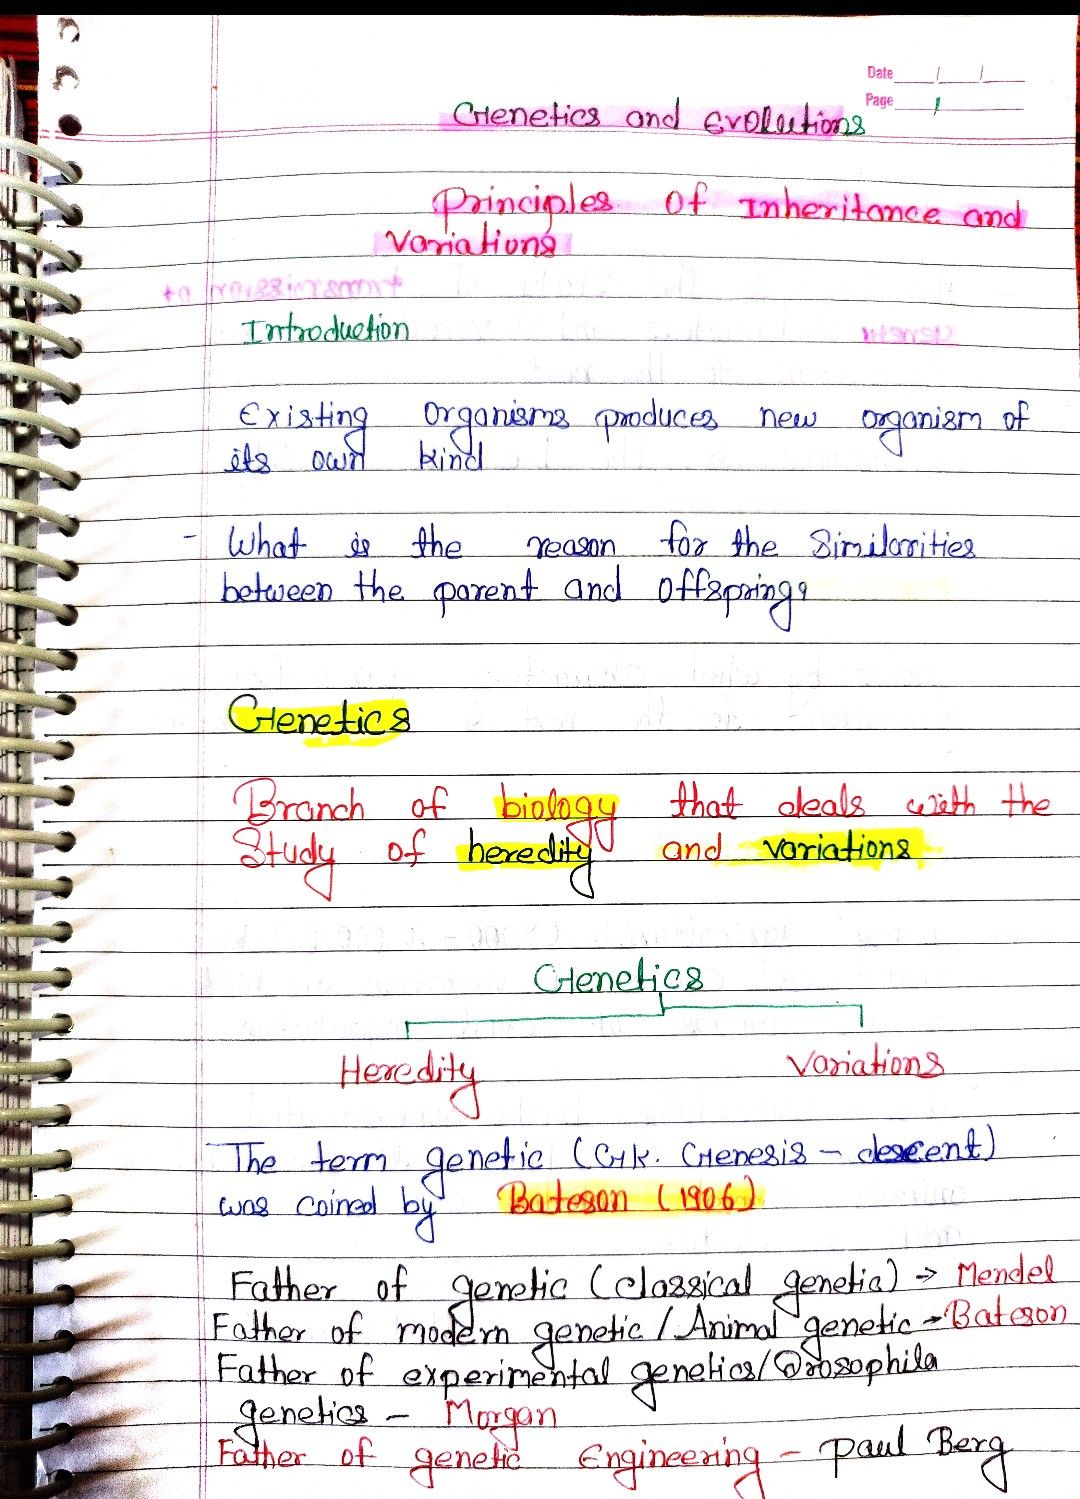 Date
Page 1
Genetics and Evolutions
Principles of Inheritance and
Variations
Introduction
Existing organisms produces new organism of
its own kind
- What is the reason for the similarities
between the parent and offspring?
Genetics
Branch of biology that deals with the
Study of heredity and variations
Genetics
Heredity Variations
The term genetic (Gk. Genesis – descent)
was coined by Bateson (1906)
Father of genetic (classical genetic) → Mendel
Father of modern genetic / Animal genetic → Bateson
Father of experimental genetics/Drosophila
genetics – Morgan
Father of genetic Engineering – Paul Berg